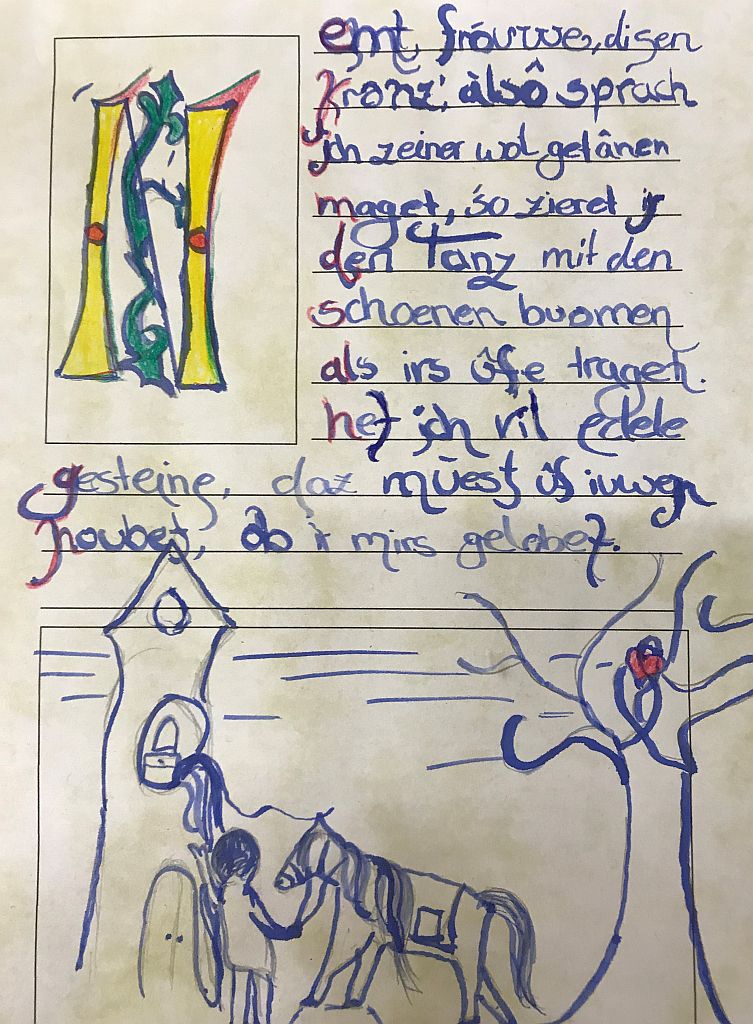 N
emt, frouwe, disen
kranz', alsô sprach
jch zeiner wol getânen
maget, so zieret ir
den Tanz mit den
schoenen buomen
als irs ûfe tragen.
het ich vil edele
gesteine, daz müest ûf iuwer
houbet, ob ir mirs gelobet.